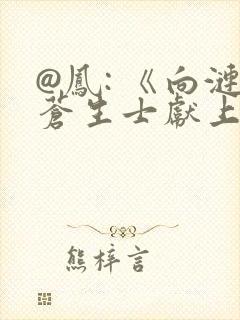 @鳳：《向漣
蒼生士獻上
熊梓言